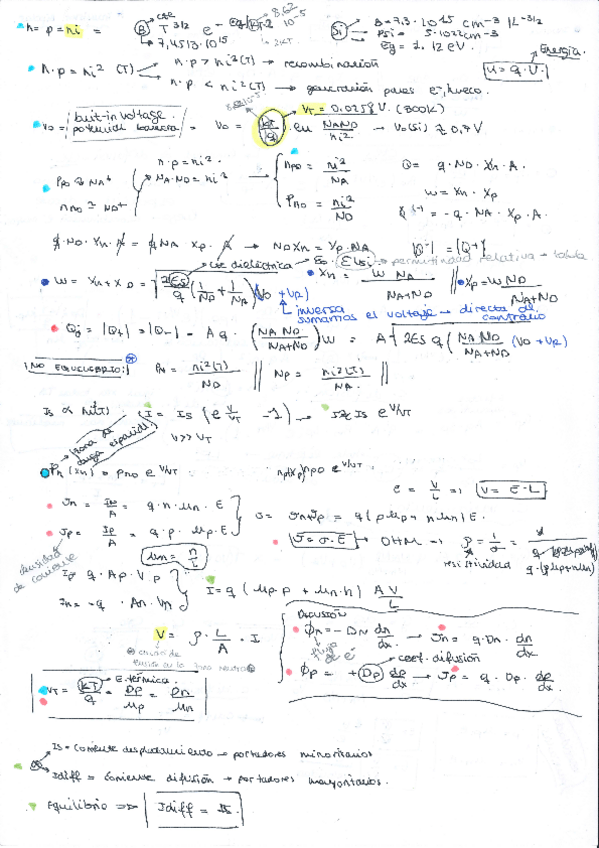 n = p = ni = B T^3/2 e^-Eg/2kT
cte
7,4513·10^15
8,62·10^-5
Si
B = 7,3·10^15 cm^-3 K^-3/2
5·10^22 cm^-3
Eg = 1.12 eV.
n·p = ni² (T)
n·p > ni²(T) → recombinación
n·p < ni²(T) → generación pares e⁻, hueco.
Energía
u = q·V.
built-in voltage.
potencial barrera
V0 = (kT/q) · ln NA ND / ni² → V0(Si) ≈ 0,7 V
VT = 0.0258 V. (300K)
n·p = ni².
Pp0 ≅ NA
nn0 ≅ ND+
NA·ND = ni²
np0 = ni²/NA
Pn0 = ni²/ND
Q = q·ND·Xn·A.
W = Xn · Xp
Q(-) = -q·NA·Xp·A.
q·ND·Xn·A = q NA Xp·A → ND Xn = Xp·NA
|Q-| = |Q+|
cte dieléctrica → E0·Er,Si → permitividad relativa → tabla
W = Xn + Xp = √(2Es/q (1/ND + 1/NA)(V0 + VR))
Xn = W NA / NA+ND
Xp = W ND / NA+ND
inversa sumamos el voltaje → directa al contrario
Qj = |Q+| = |Q-| = A q · (NA ND / NA+ND) W = A √(2Es q (NA ND / NA+ND)(V0 + VR))
NO EQUILIBRIO:
Pn = ni²(T)/ND || Np = ni²(T)/NA ||
Is ∝ ni²(T)
I = Is (e^V/VT - 1) → I ≈ Is e^V/VT
V >> VT
zona de carga espacial
Pn (xn) = pn0 e^V/VT
np(xp) np0 e^V/VT
E = V/L => V = E·L
Jn = In/A = q·n·μn·E
Jp = Ip/A = q·p·μp·E
J = Jn+Jp = q(pμp + nμn)E.
densidad de corriente
J = σ·E → OHM => ρ = 1/σ = 1/q·(pμp+nμn)
resistividad
Ip = q·Ap·Vp
In = -q·An·Vn
I = q (μp·p + μn·n) AV/L
V = ρ · L/A · I
DIFUSIÓN
φn = -Dn dn/dx → Jn = q·Dn · dn/dx
flujo de e⁻
coef. difusión
φp = +Dp dp/dx → Jp = q·Dp · dp/dx
E. térmica
VT = kT/q = Dp/μp = Dn/μn
Is = corriente desplazamiento → portadores minoritarios
Idiff = corriente difusión → portadores mayoritarios.
Equilibrio => Idiff = Is.